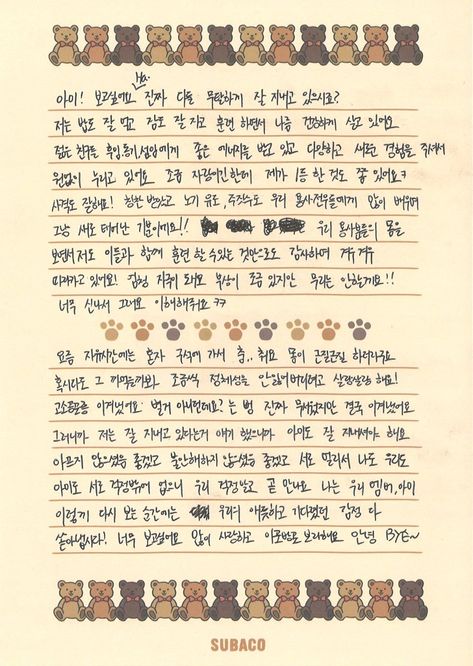 ㅠㅠ
아미! 보고싶어요 진짜 다들 무탈하게 잘 지내고 있으시죠?
저는 밥도 잘 먹고 잠도 잘 자고 훈련 하면서 나름 건강하게 살고 있어요
젊은 친구들 후임, 동기, 선임에게 좋은 에너지를 받고 있고 다양하고 새로운 경험을 주셔서
원없이 누리고 있어요 조금 자랑이긴한데 제가 1등 한 것도 좀 있어요ㅋ
사격도 잘해요! 칭찬 받았고 노기 유도, 주짓수도 우리 용사 전우들에게 많이 배우며
그냥 새로 태어난 기분이에요!! 우리 용사분들의 몸을
보면서 저도 이들과 함께 훈련 한 수 있는 것만으로도 감사하며 겨우겨우
따라가고 있어요! 체력 지주 돼요 부상이 조금 있지만 무리는 안할게요!!
너무 신나서 그래요 이해해주요 ㅋㅋ
요즘 자유시간에는 혼자 구석에 가서 춤.. 춰요 몸이 근질근질 하더라구요
혹시라도 그 까먹을까봐 조금씩 정체성을 안잃어버리려고 살랑살랑 해요!
고소공포증 이겨냈어요 별거 아니던데요? 는 뻥 진짜 무서웠지만 결국 이겨냈어요
그러니까 저는 잘 지내고 있다는거 얘기 했으니까 아미도 잘 지내셔야 해요
아프지 않으셨음 좋겠고 불안해하지 않으셨음 좋겠고 서로 멀리서 나도 우리도
아미도 서로 걱정밖에 없으니 우리 걱정말고 곧 만나요 나는 우리 멤버, 아미
이렇게 다시 보는 순간에는 우리의 애틋하고 기다렸던 감정 다
쏟아냅시다! 너무 보고싶어요 많이 사랑하고 이곳반도 보라해요 안녕 BYE~
SUBACO